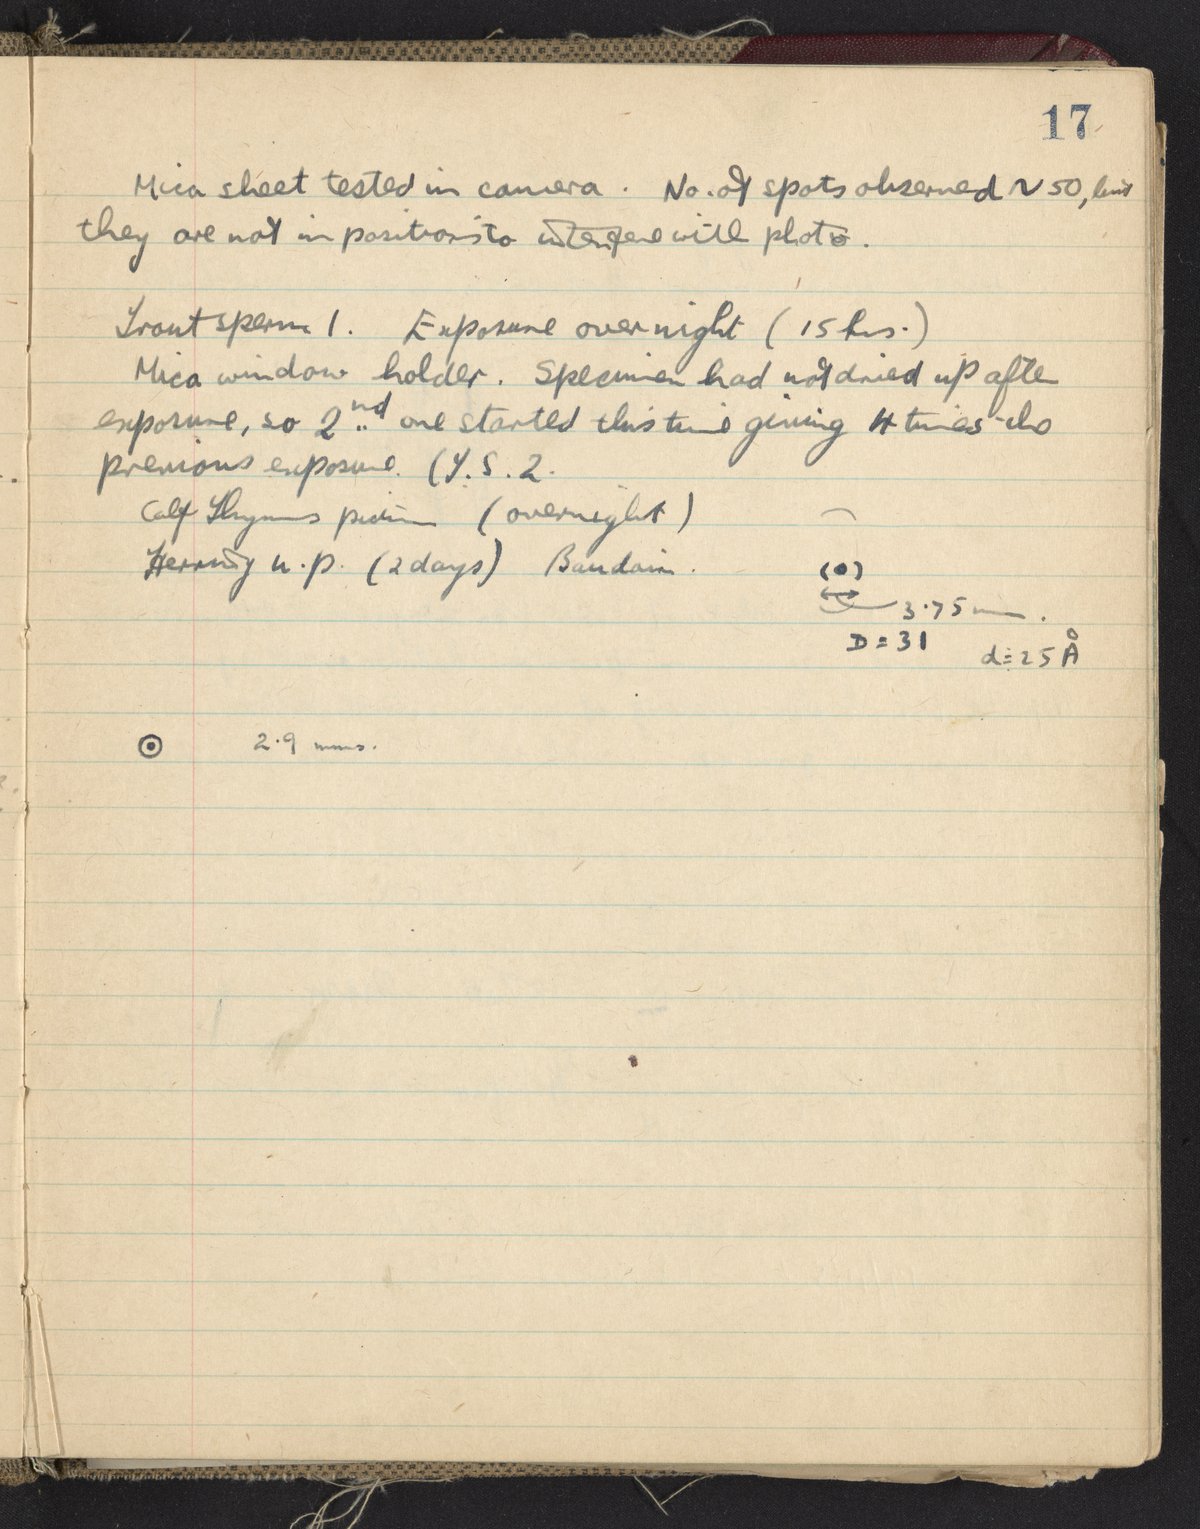 17
Mica sheet tested in camera. No. of spots observed ~ 50, but
they are not in positions to interfere with photo.
Trout sperm 1. Exposure overnight (15 hrs.)
Mica window holder. Specimen had not dried up after
exposure, so 2nd one started this time giving 4 times the
previous exposure. (T.S.2.
Calf Thymus (overnight)
Herring n.p. (2 days)
3.75 mm.
D = 31 d ≐ 25 Å
2.9 mms.